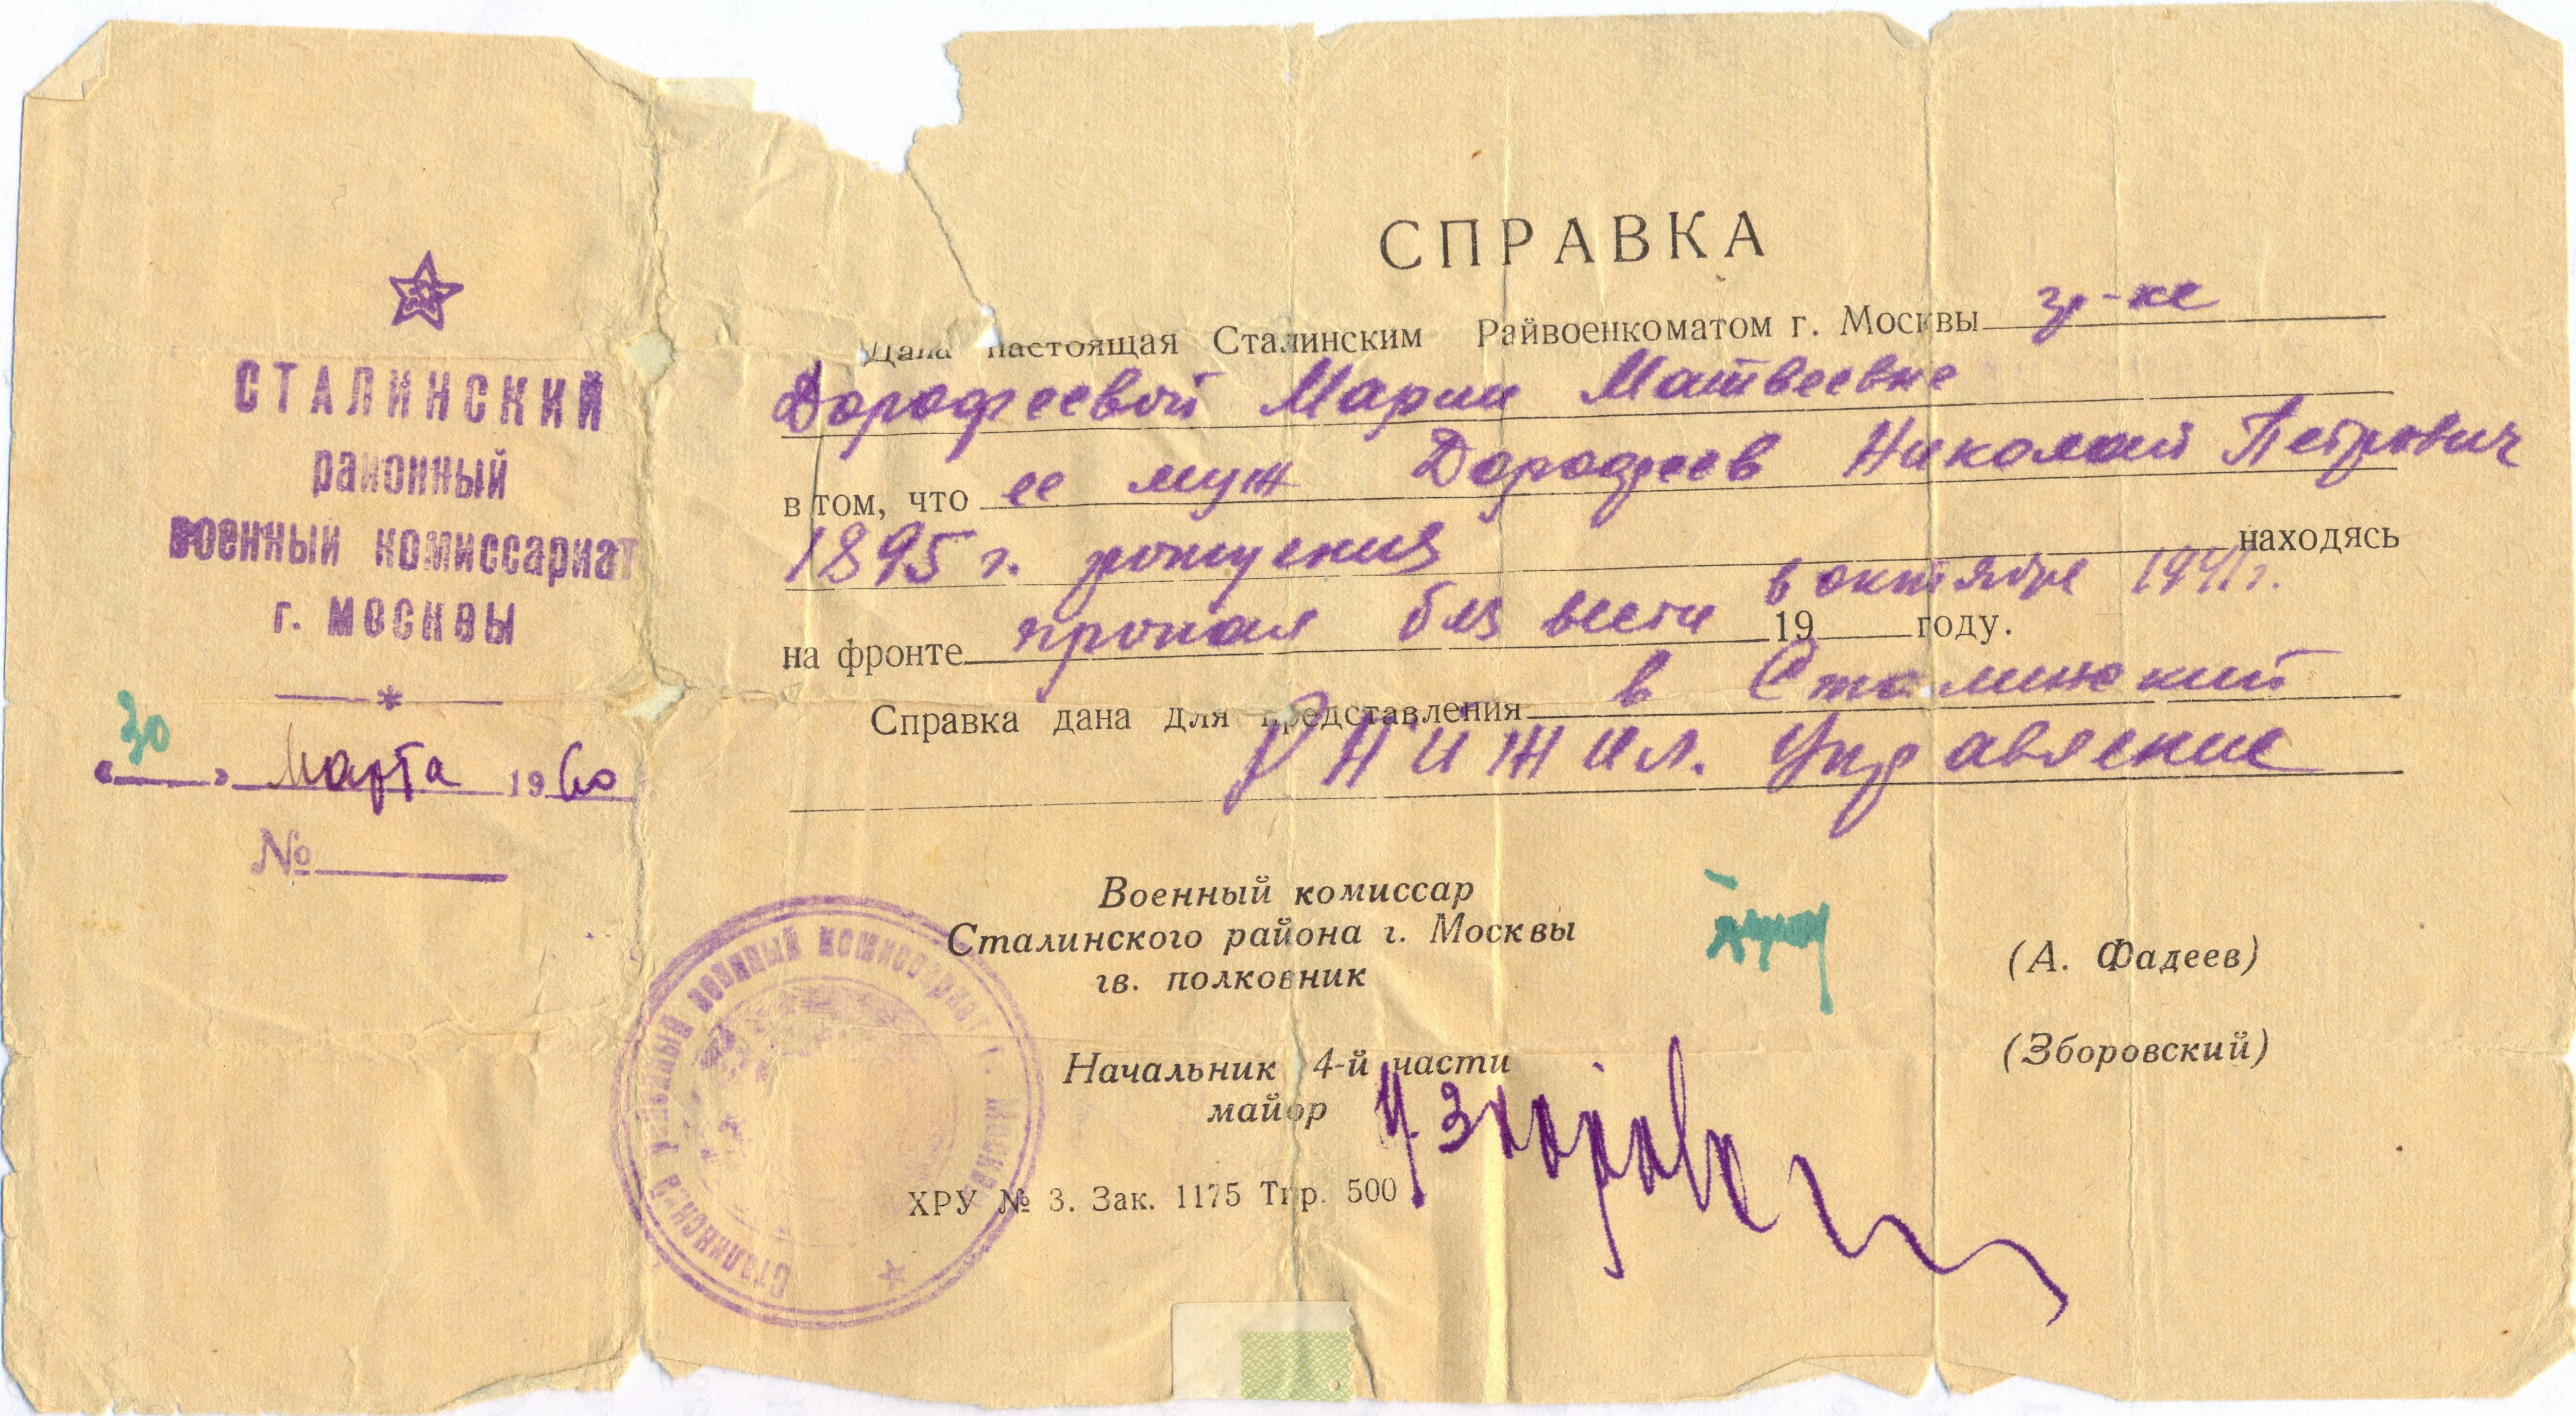 СТАЛИНСКИЙ
районный
военный комиссариат
г. МОСКВЫ
*
«30» Марта 1960
№
СПРАВКА
Дана настоящая Сталинским Райвоенкоматом г. Москвы гр-ке
Дорофеевой Марии Матвеевне
в том, что ее муж Дорофеев Николай Петрович
1895 г. рождения находясь
на фронте пропал без вести в октябре 1941 г. 19 году.
Справка дана для представления в Сталинский
РНИ Жил. Управление
Военный комиссар
Сталинского района г. Москвы
гв. полковник
(А. Фадеев)
Начальник 4-й части
майор
(Зборовский)
ХРУ № 3. Зак. 1175 Тир. 500
Сталинский районный военный комиссариат г. Москвы